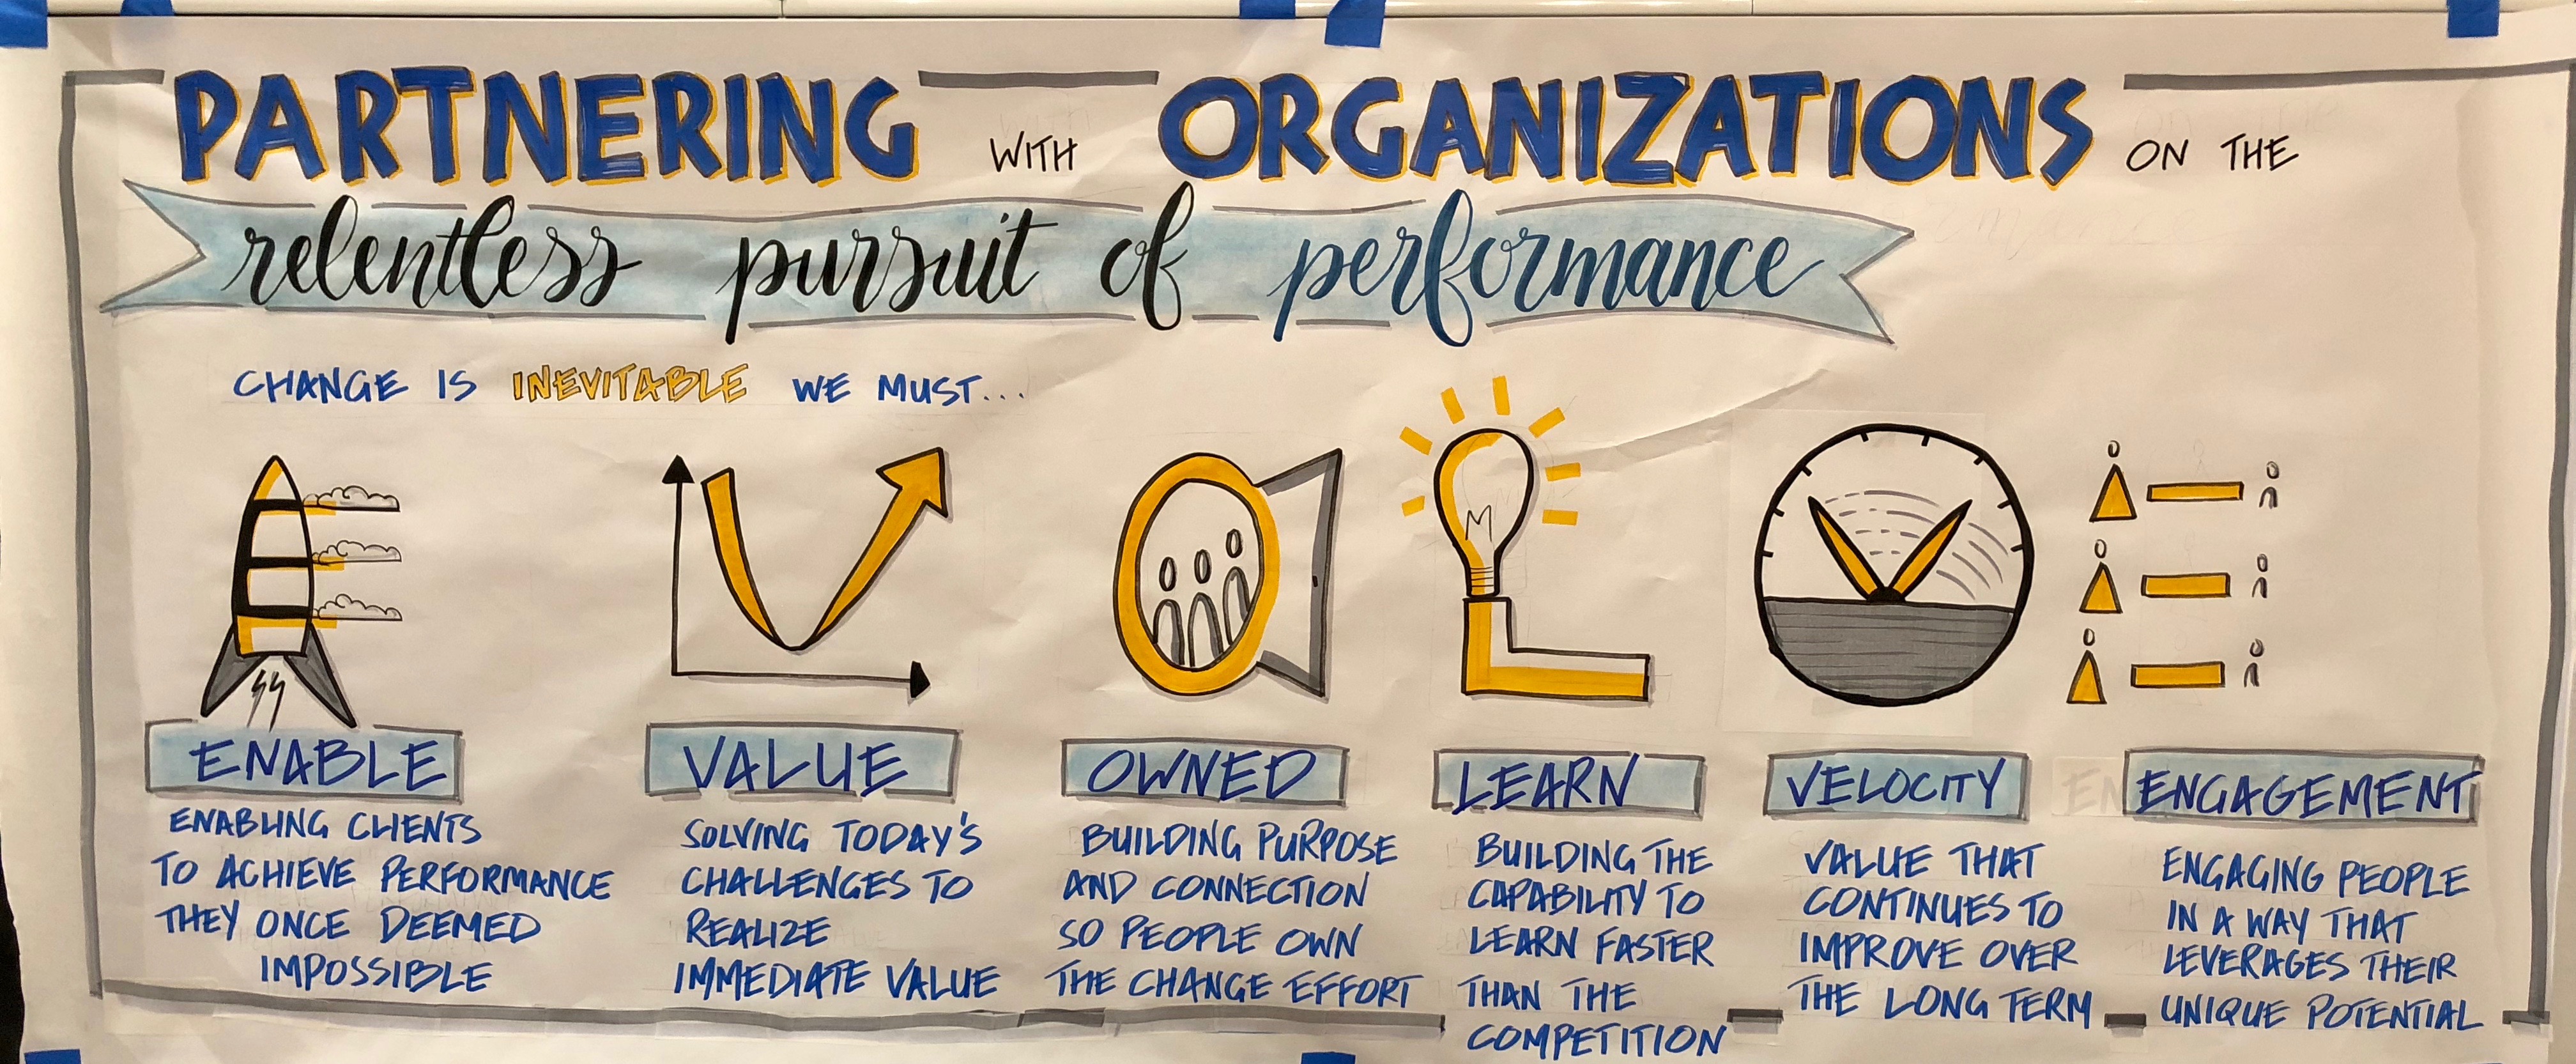 PARTNERING WITH ORGANIZATIONS ON THE
relentless pursuit of performance
CHANGE IS INEVITABLE WE MUST...
ENABLE
ENABLING CLIENTS
TO ACHIEVE PERFORMANCE
THEY ONCE DEEMED
IMPOSSIBLE
VALUE
SOLVING TODAY'S
CHALLENGES TO
REALIZE
IMMEDIATE VALUE
OWNED
BUILDING PURPOSE
AND CONNECTION
SO PEOPLE OWN
THE CHANGE EFFORT
LEARN
BUILDING THE
CAPABILITY TO
LEARN FASTER
THAN THE
COMPETITION
VELOCITY
VALUE THAT
CONTINUES TO
IMPROVE OVER
THE LONG TERM
ENGAGEMENT
ENGAGING PEOPLE
IN A WAY THAT
LEVERAGES THEIR
UNIQUE POTENTIAL